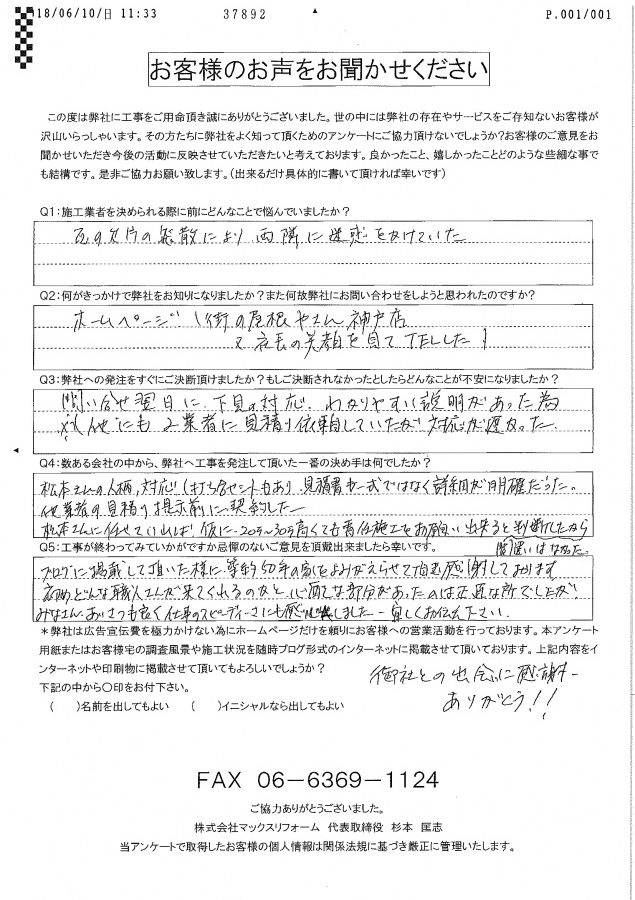 18/06/10/日 11:33 37892 P.001/001
お客様のお声をお聞かせください
この度は弊社に工事をご用命頂き誠にありがとうございました。世の中には弊社の存在やサービスをご存知ないお客様が
沢山いらっしゃいます。その方たちに弊社をよく知って頂くためのアンケートにご協力頂けないでしょうか?お客様のご意見をお
聞かせいただき今後の活動に反映させていただきたいと考えております。良かったこと、嬉しかったことどのような些細な事で
も結構です。是非ご協力お願い致します。(出来るだけ具体的に書いて頂ければ幸いです)
Q1:施工業者を決められる際に前にどんなことで悩んでいましたか?
瓦の欠片の飛散により 両隣に迷惑をかけていた
Q2:何がきっかけで弊社をお知りになりましたか?また何故弊社にお問い合わせをしようと思われたのですか?
ホームページ 街の屋根やさん神戸店
又 社長の笑顔を見てTELした!
Q3:弊社への発注をすぐにご決断頂けましたか?もしご決断されなかったとしたらどんなことが不安になりましたか?
問い合せ翌日に、下見の対応、わかりやすい説明があった為
他にも2業者に見積り依頼していたが 対応が遅かった
Q4:数ある会社の中から、弊社へ工事を発注して頂いた一番の決め手は何でしたか?
松本さんの人柄、対応!(打ち合せ もあり、見積書も一式ではなく詳細が明確だった。
他業者の見積り提示前に契約した
松本さんに任せていれば 仮に20万~30万高くても責任施工をお願い出来ると判断したから
間違いはなかった。
Q5:工事が終わってみていかがですか忌憚のないご意見を頂戴出来ましたら幸いです。
ブログに掲載して頂いた様に 築約50年の家をよみがえらせて頂き感謝しております
初めどんな職人さんが来てくれるのかと、心配な部分があったのは正直な所でしたが
みなさん、あいさつも良く仕事のスピーディーさにも感心しました 宜しくお伝え下さい。
*弊社は広告宣伝費を極力かけない為にホームページだけを頼りにお客様への営業活動を行っております。本アンケート
用紙またはお客様宅の調査風景や施工状況を随時ブログ形式のインターネットに掲載させて頂いております。上記内容をイ
ンターネットや印刷物に掲載させて頂いてもよろしいでしょうか?
下記の中から○印をお付下さい。
( )名前を出してもよい ( )イニシャルなら出してもよい
御社との出会に感謝
ありがとう!!
FAX 06-6369-1124
ご協力ありがとうございました。
株式会社マックスリフォーム 代表取締役 杉本 匡志
当アンケートで取得したお客様の個人情報は関係法規に基づき厳正に管理いたします。